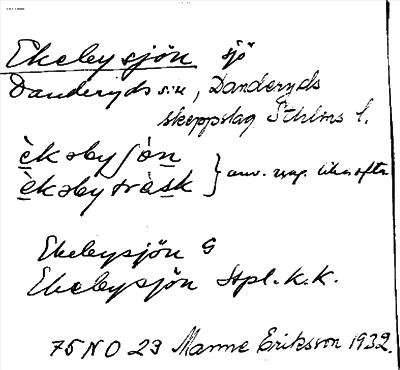 Ekebysjön sjö
Danderyds sn, Danderyds
skeppslag Sthlms l.
èkəbyʃön
èkəbytràsk } anv. lika ofta
Ekebysjön G
Ekebysjön Stpl. K.K.
75 NO 23 Manne Eriksson 1932.